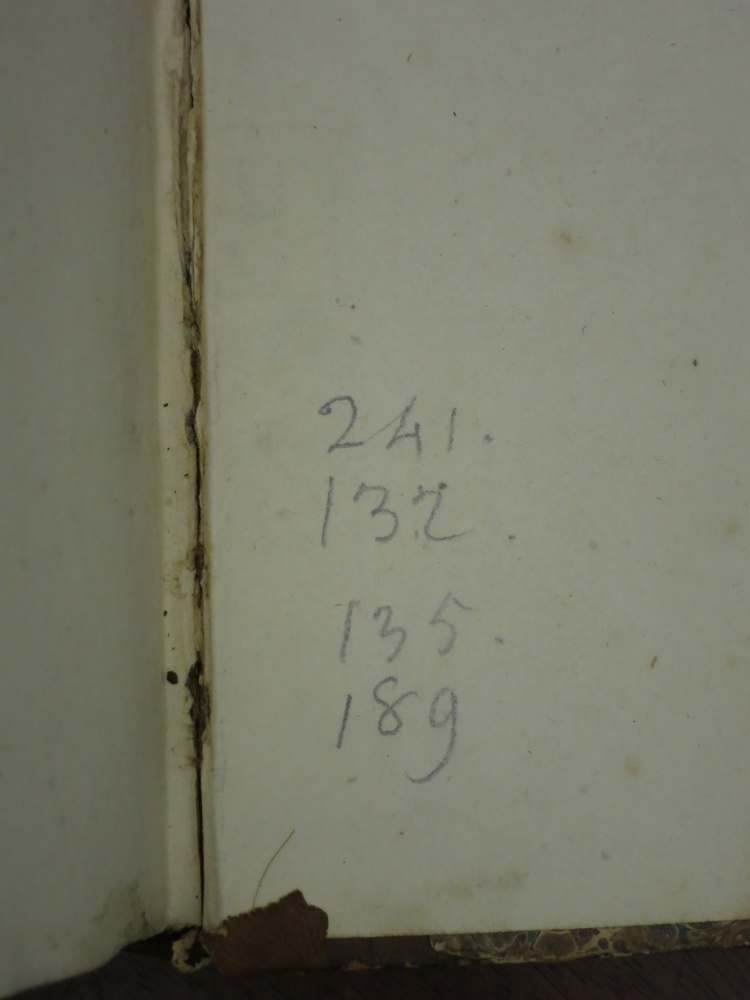 241.
132.
135.
189